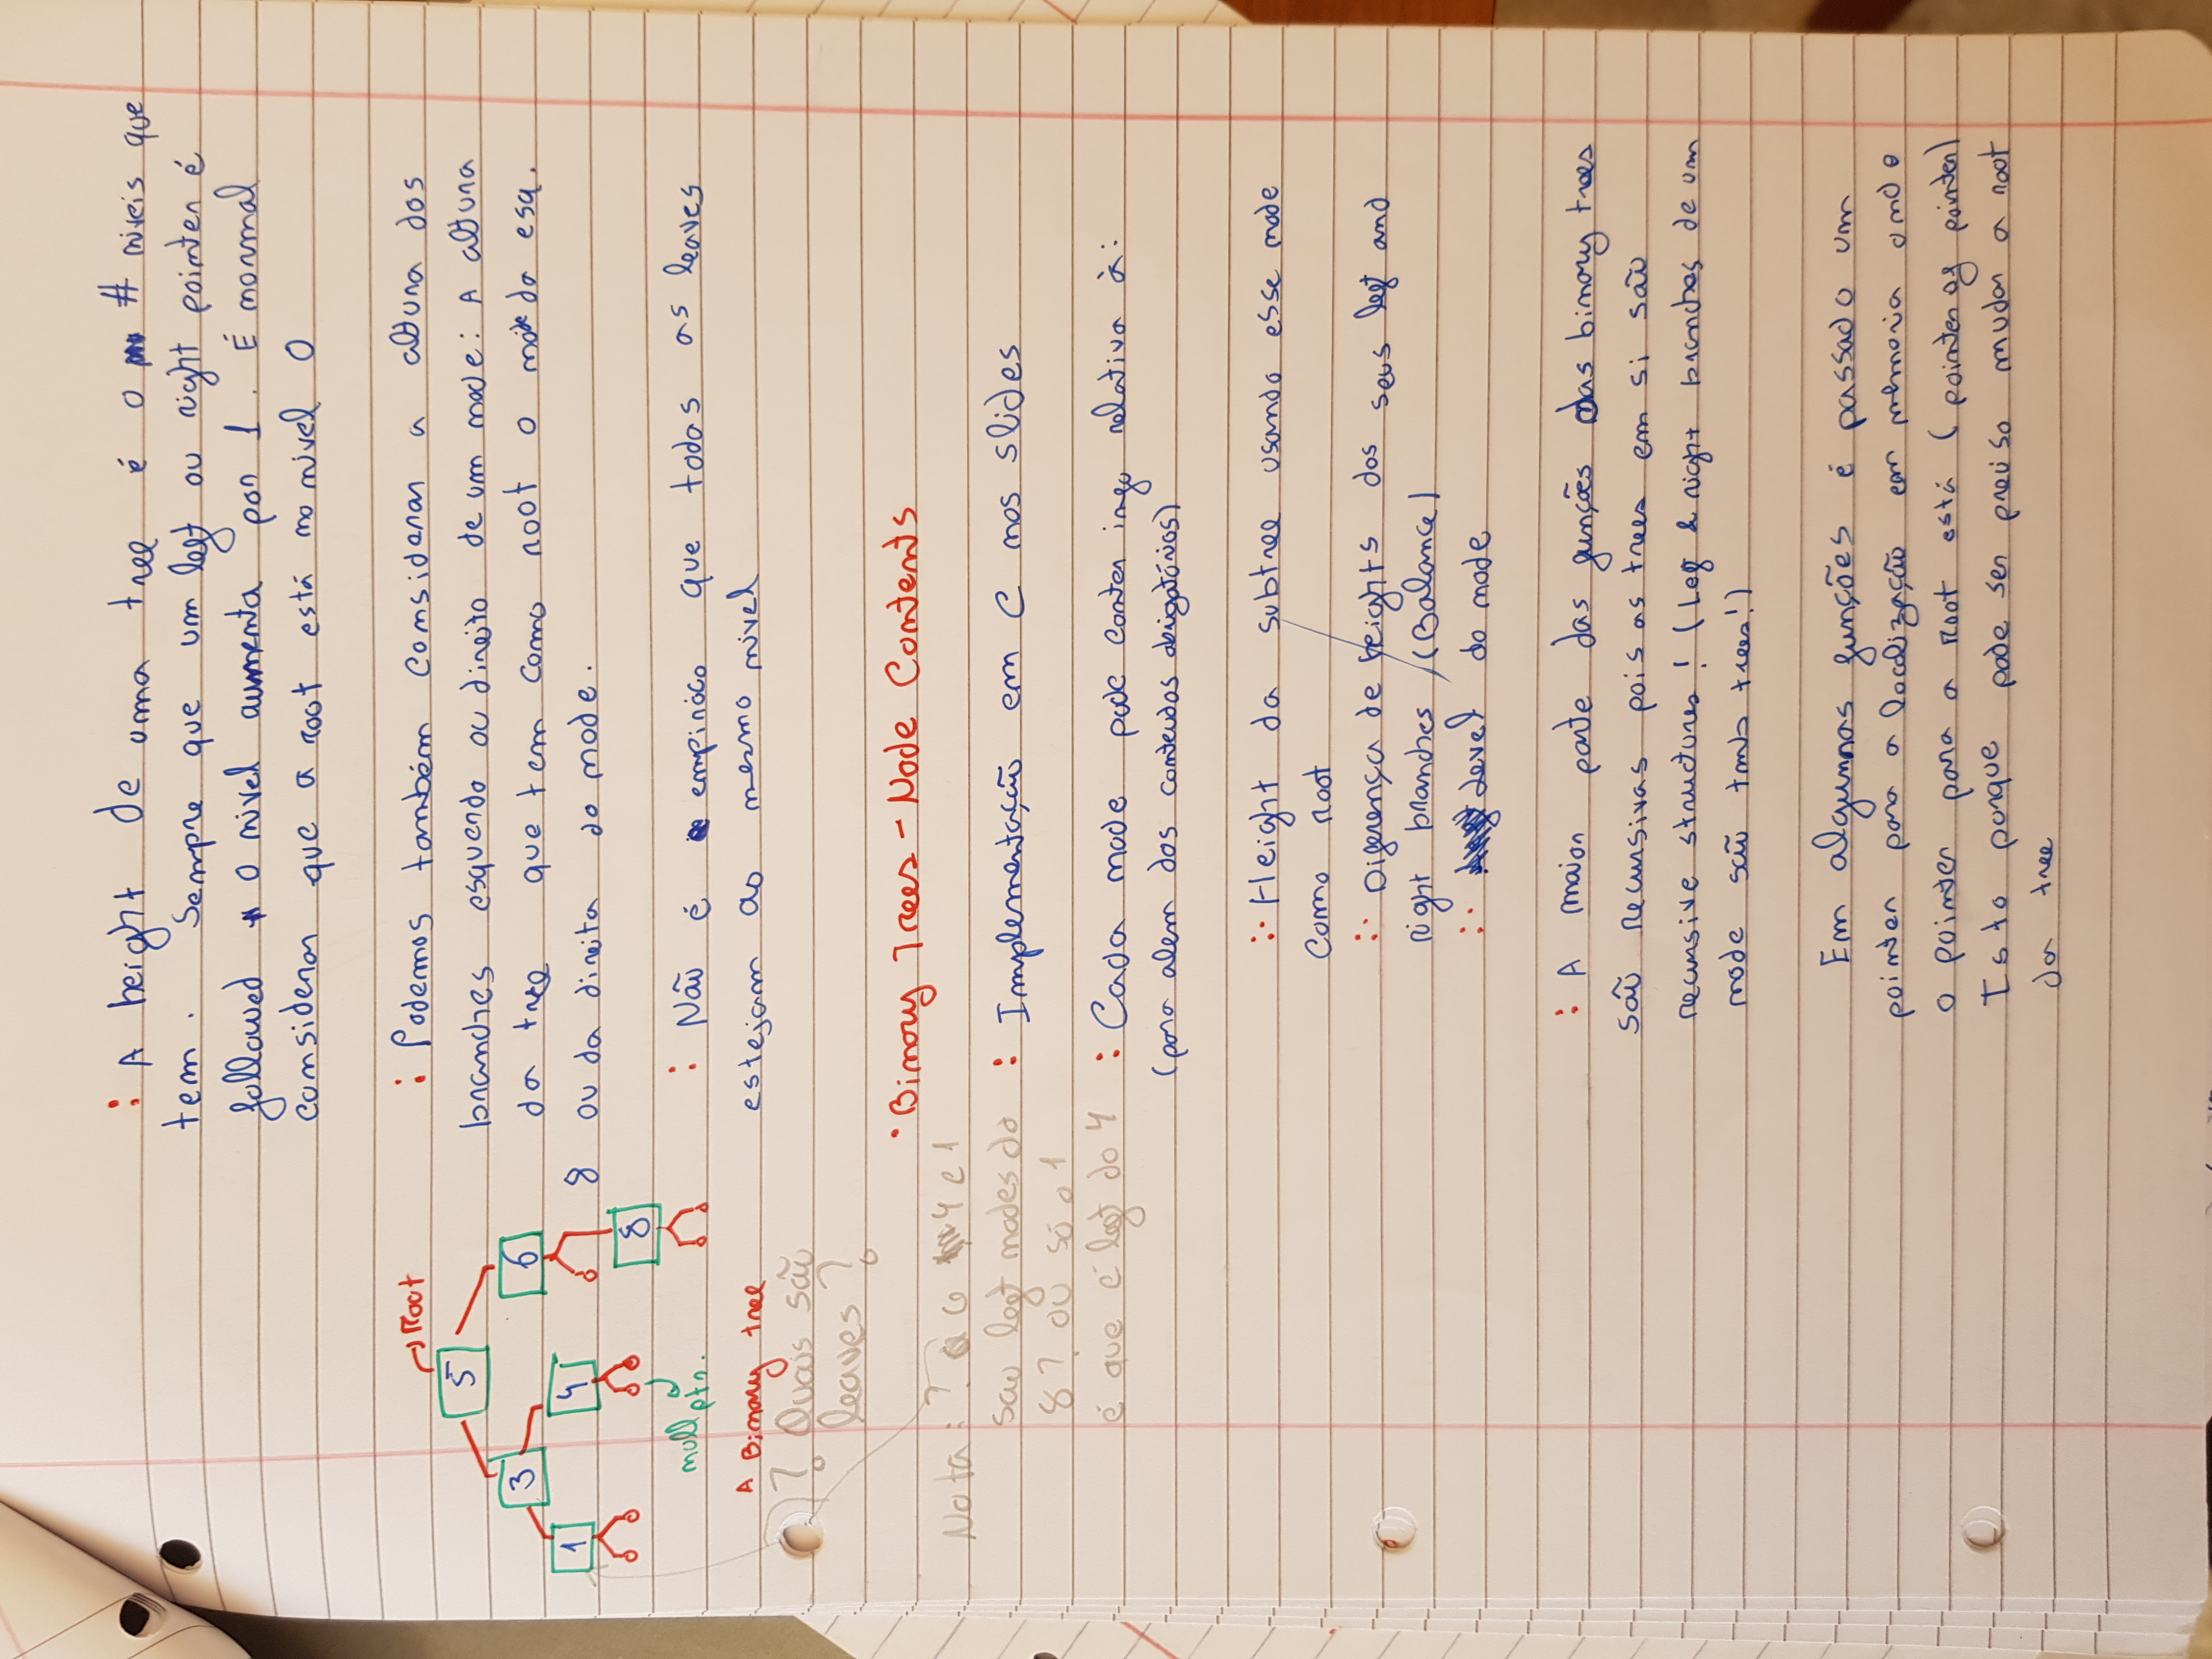 : A height de uma tree é o # niveis que
tem. Sempre que um left ou right pointer é
followed o nivel aumenta por 1. É normal
considerar que a root está no nivel 0
Root
5
3
6
1
4
8
null ptr.
A Binary tree
? Quais são
leaves?
: Podemos também considerar a altura dos
branches esquerdo ou direito de um node: A altura
da tree que tem como root o node da esq.
8 ou da direita do node.
: Não é empiríco que todas as leaves
estejam ao mesmo nivel
· Binary Trees - Node Contents
Nota: ? o 6 4 e 1
sao left nodes do
8? ou só o 1
é que é left do 4
: Implementação em C nos slides
: Cada node pode conter info relativa à:
(para alem dos conteudos obrigatórios)
:· Height da subtree usando esse node
como root
:· Diferença de heights dos seus left and
right branches (Balance)
:· Level do node
: A maior parte das funções das binary trees
são recursivas pois as trees em si são
recursive structures! (Lef & right branches de um
node são tmb trees!)
Em algumas funções é passado um
pointer para a localização em memoria onde
o pointer para a root está (pointer of pointer)
Isto porque pode ser preciso mudar a root
da tree